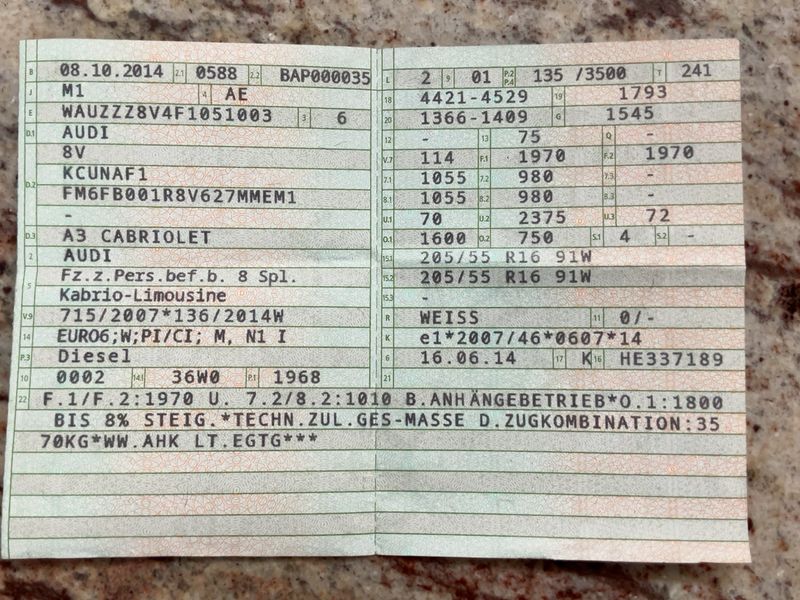 B 08.10.2014 2.1 0588 2.2 BAP000035
J M1 4 AE
E WAUZZZ8V4F1051003 3 6
D.1 AUDI
8V
D.2 KCUNAF1
FM6FB001R8V627MMEM1
-
D.3 A3 CABRIOLET
2 AUDI
5 Fz.z.Pers.bef.b. 8 Spl.
Kabrio-Limousine
V.9 715/2007*136/2014W
14 EURO6;W;PI/CI; M, N1 I
P.3 Diesel
10 0002 14.1 36W0 P.1 1968
L 2 9 01 P.2 P.4 135 /3500 T 241
18 4421-4529 19 1793
20 1366-1409 G 1545
12 - 13 75 Q -
V.7 114 F.1 1970 F.2 1970
7.1 1055 7.2 980 7.3 -
8.1 1055 8.2 980 8.3 -
U.1 70 U.2 2375 U.3 72
O.1 1600 O.2 750 S.1 4 S.2 -
15.1 205/55 R16 91W
15.2 205/55 R16 91W
15.3 -
R WEISS 11 0/-
K e1*2007/46*0607*14
6 16.06.14 17 K 16 HE337189
21
22 F.1/F.2:1970 U. 7.2/8.2:1010 B.ANHÄNGEBETRIEB*O.1:1800
BIS 8% STEIG.*TECHN.ZUL.GES-MASSE D.ZUGKOMBINATION:35
70KG*WW.AHK LT.EGTG***